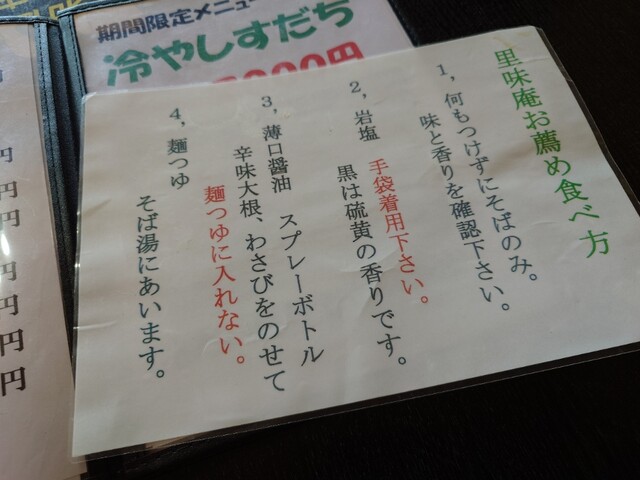 期間限定メニュー
冷やしすだち
里味庵お薦め食べ方
1，何もつけずにそばのみ。
味と香りを確認下さい。
2，岩塩 手袋着用下さい。
黒は硫黄の香りです。
3，薄口醤油 スプレーボトル
辛味大根、わさびをのせて
麺つゆに入れない。
4，麺つゆ
そば湯にあいます。
円
円
円
円
円
円
円